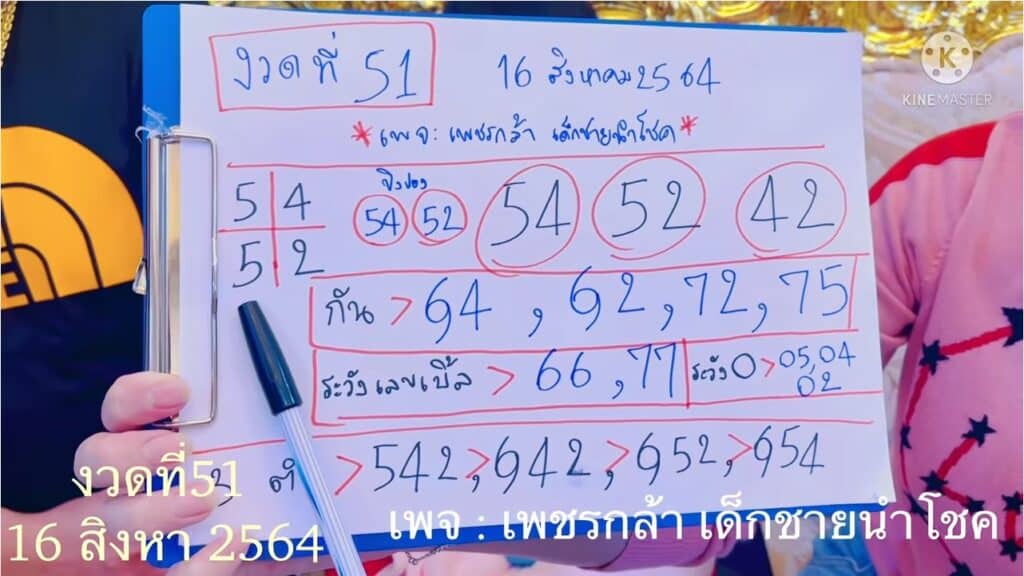 งวดที่ 51
16 สิงหาคม 2564
KINEMASTER
*เพจ: เพชรกล้า เด็กชายนำโชค*
5 4
5 2
ปิงปอง
54 52
54 52 42
กัน > 64, 62, 72, 75
ระวังเลขเบิ้ล > 66, 77
ระวัง 0 > 05, 04
02
3 ตัว > 542, > 642, > 652, > 654
งวดที่51
16 สิงหา 2564
เพจ : เพชรกล้า เด็กชายนำโชค